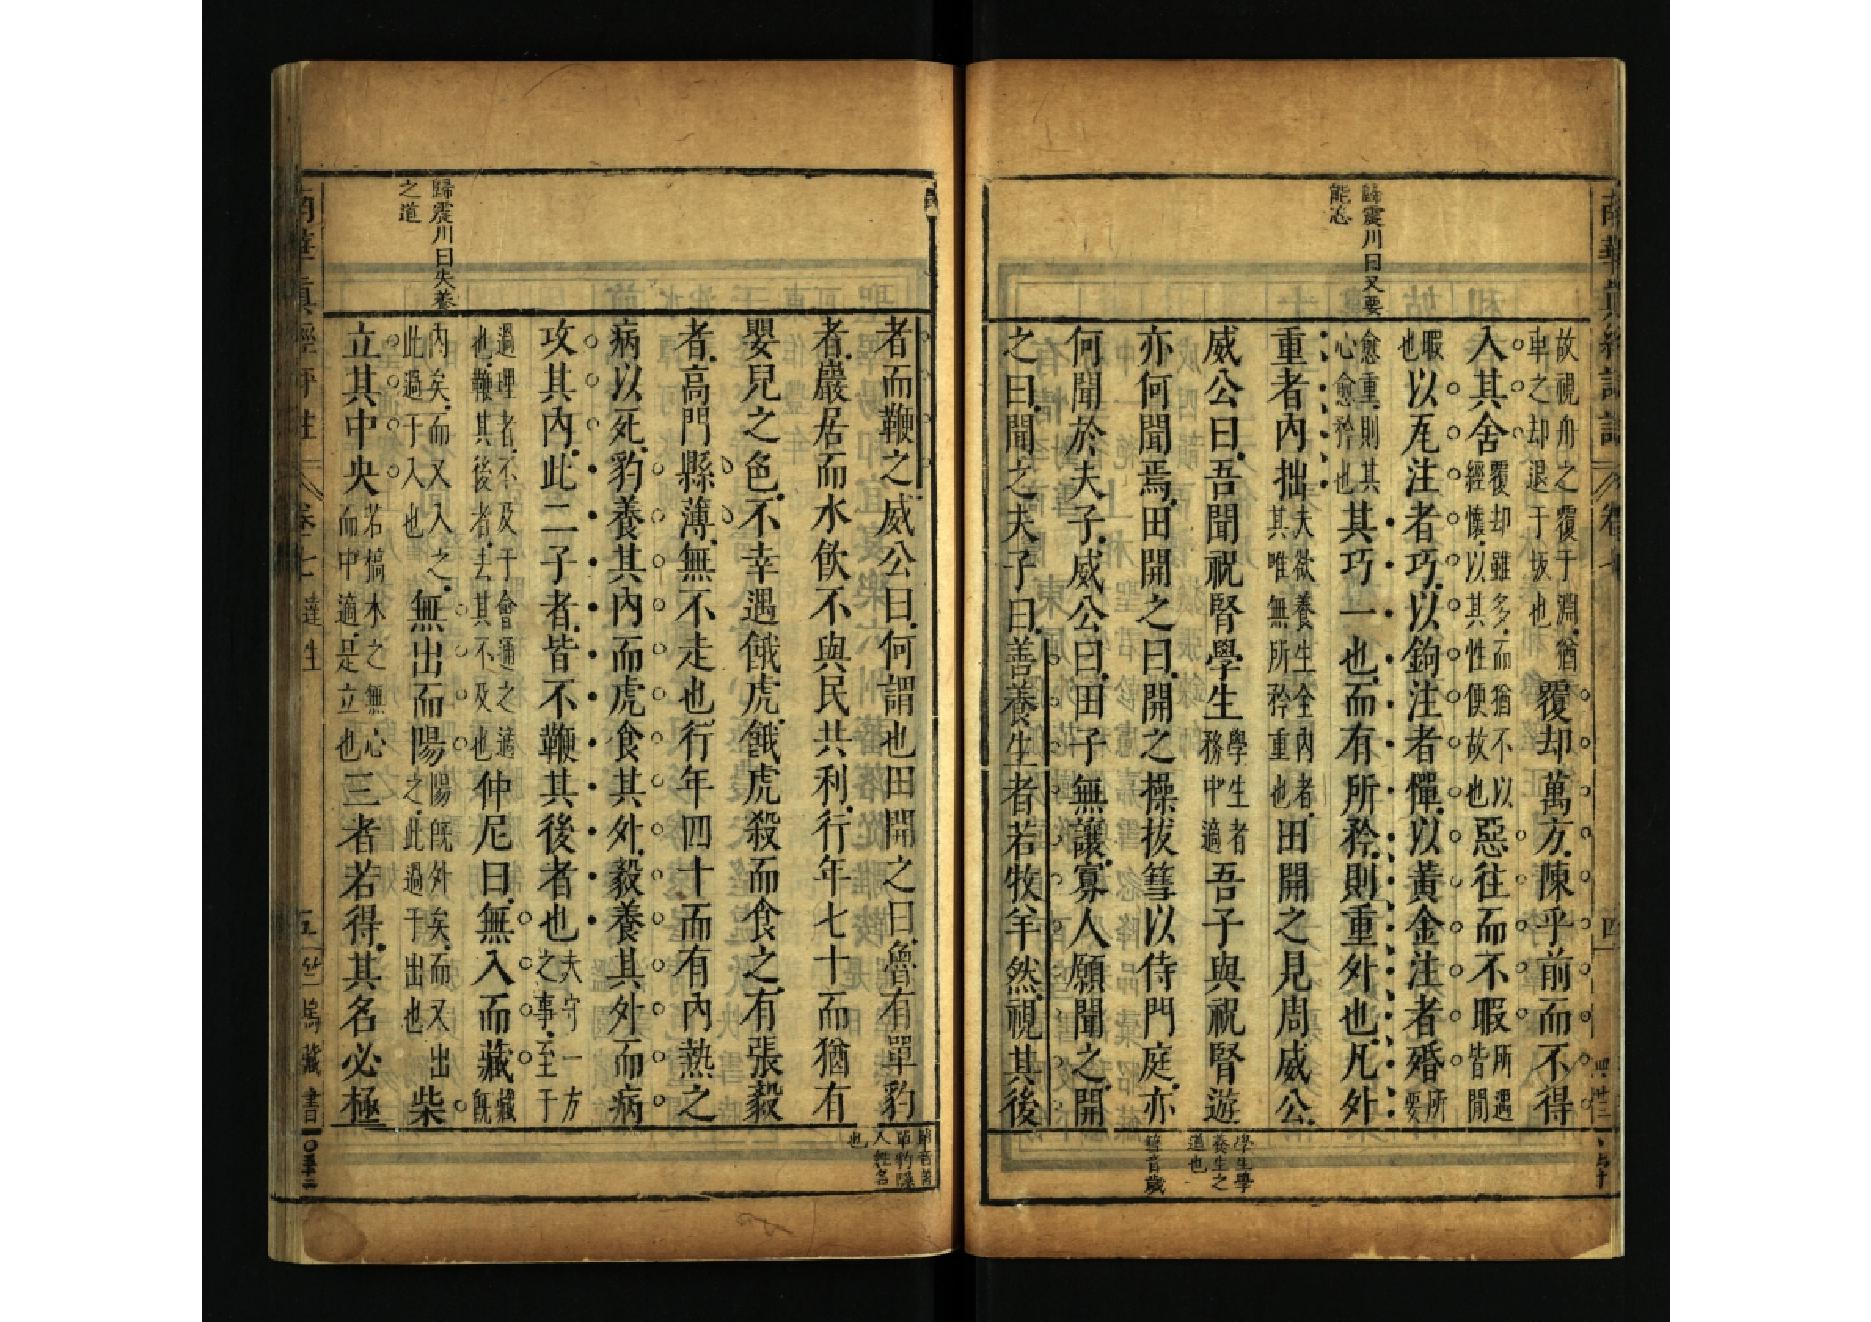 歸震川曰又要
能忘
故視舟之覆于淵猶
車之却退于坂也
覆却萬方陳乎前而不得
入其舍
覆却雖多而猶不以
經懷以其性便故也
惡往而不暇
所遇
皆閒
暇
也
以瓦注者巧以鉤注者憚以黃金注者殙
所
要
愈重則其
心愈矜也
其巧一也而有所矜則重外也凡外
重者內拙
夫欲養生全內者
其唯無所矜重也
田開之見周威公
威公曰吾聞祝腎學生
學生者
務中適
吾子與祝腎遊
亦何聞焉田開之曰開之操拔篲以侍門庭亦
何聞於夫子威公曰田子無讓寡人願聞之開
之曰聞之夫子曰善養生者若牧羊然視其後
學生學
養生之
道也
篲音歲
歸震川曰失養
之道
者而鞭之威公曰何謂也田開之曰魯有單豹
者巖居而水飲不與民共利行年七十而猶有
嬰兒之色不幸遇餓虎餓虎殺而食之有張毅
者高門縣薄無不走也行年四十而有內熱之
病以死豹養其內而虎食其外毅養其外而病
攻其內此二子者皆不鞭其後者也
夫守一方
之事至于
過理者不及于會通之適
也鞭其後者去其不及也
仲尼曰無入而藏
藏
既
內矣而又入之
此過于入也
無出而陽
陽既外矣而又出
之此過于出也
柴
立其中央
若槁木之無心
而中適是立也
三者若得其名必極
單豹隱
人姓名
也
南華真經評註
卷七
達生
五